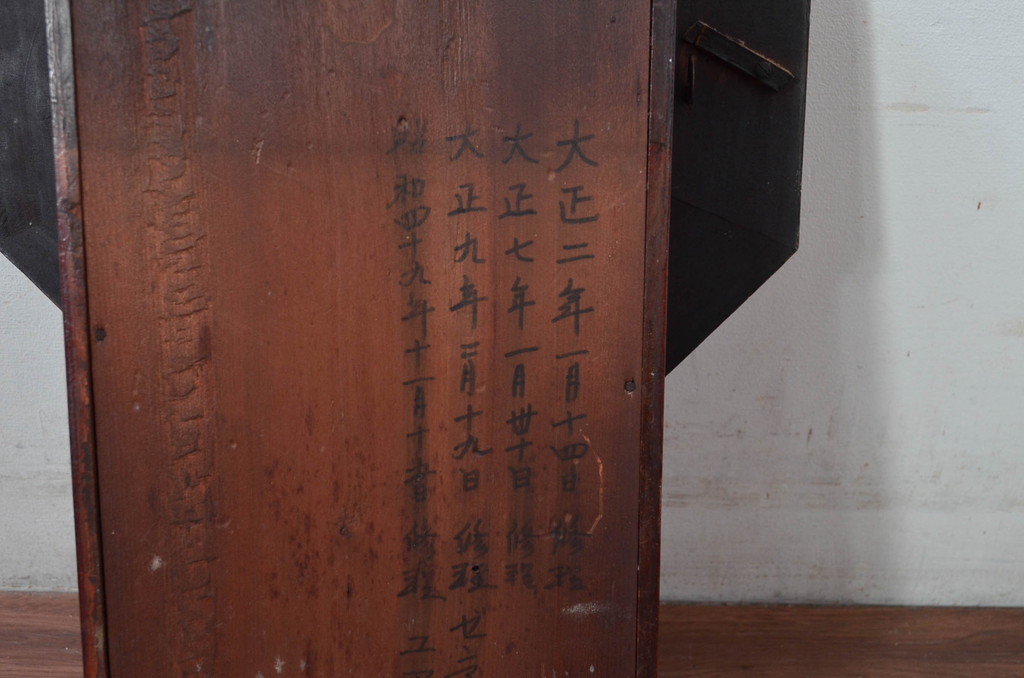 大正二年一月十四日 修理
大正七年一月廿十日 修理
大正九年二月十九日 修理 ゼ
昭和四十九年十一月十 修理